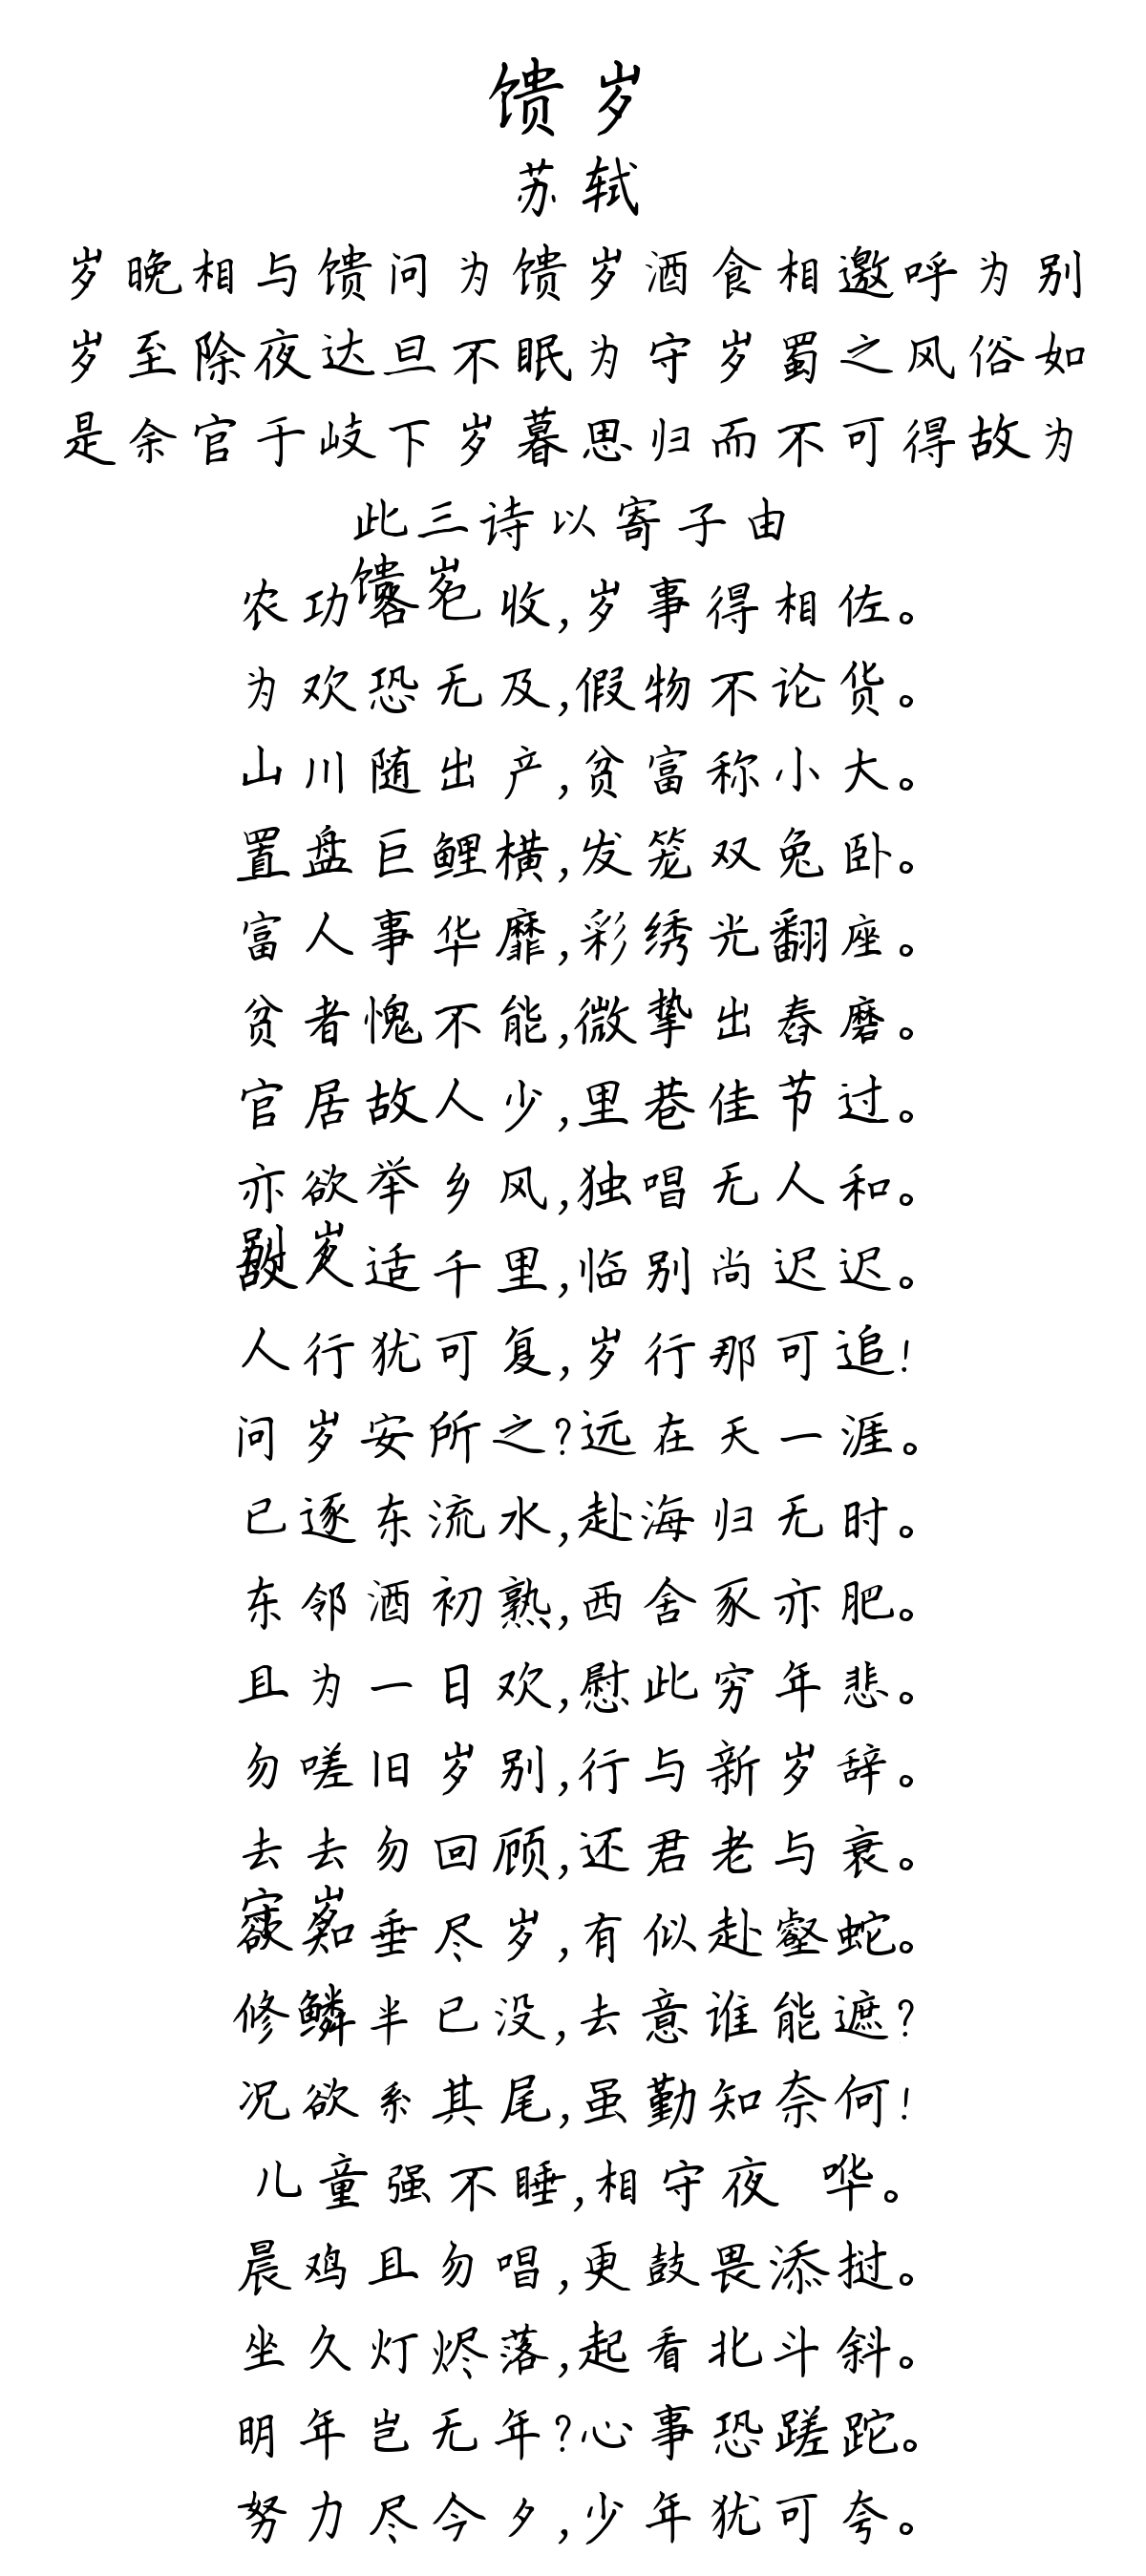 馈岁
苏轼
岁晚相与馈问为馈岁酒食相邀呼为别
岁至除夜达旦不眠为守岁蜀之风俗如
是余官于岐下岁暮思归而不可得故为
此三诗以寄子由
馈岁
农功各已收,岁事得相佐。
为欢恐无及,假物不论货。
山川随出产,贫富称小大。
置盘巨鲤横,发笼双兔卧。
富人事华靡,彩绣光翻座。
贫者愧不能,微挚出舂磨。
官居故人少,里巷佳节过。
亦欲举乡风,独唱无人和。
别岁
故人适千里,临别尚迟迟。
人行犹可复,岁行那可追!
问岁安所之?远在天一涯。
已逐东流水,赴海归无时。
东邻酒初熟,西舍豕亦肥。
且为一日欢,慰此穷年悲。
勿嗟旧岁别,行与新岁辞。
去去勿回顾,还君老与衰。
守岁
欲知垂尽岁,有似赴壑蛇。
修鳞半已没,去意谁能遮?
况欲系其尾,虽勤知奈何!
儿童强不睡,相守夜 哗。
晨鸡且勿唱,更鼓畏添挝。
坐久灯烬落,起看北斗斜。
明年岂无年?心事恐蹉跎。
努力尽今夕,少年犹可夸。